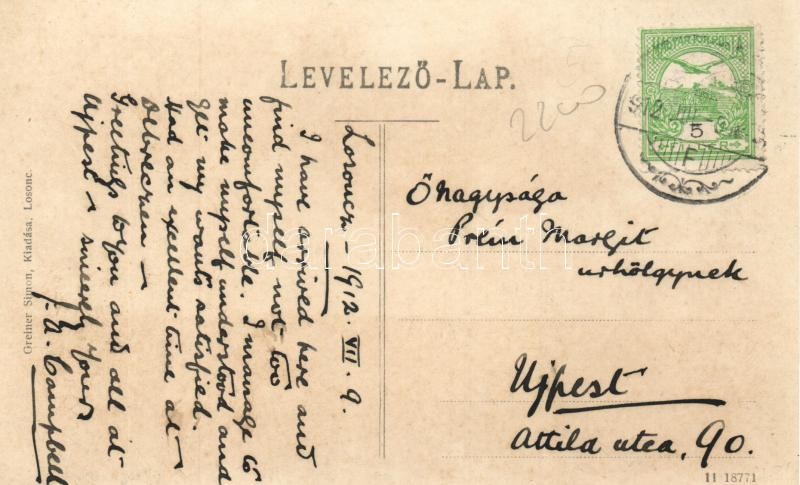 LEVELEZŐ-LAP.
Losoncz - 1912. VII. 9.
I have arrived here and
find myself not too
uncomfortable. I manage to
make myself understood and
get my wants satisfied.
Had an excellent time at
Debreczen -
Greetings to you and all at
Ujpest - sincerely yours
J. A. Campbell
Őnagysága
Prém Margit
urhölgynek
Ujpest
Attila utca, 90.
MAGYAR KIR. POSTA
5
2200
Greiner Simon, Kiadása, Losonc.
11 18771
darabanth